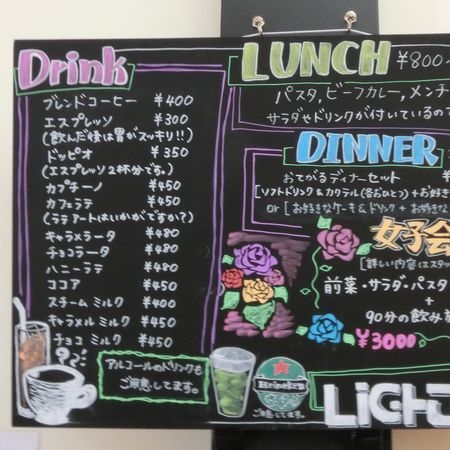 Drink
ブレンドコーヒー ¥400
エスプレッソ ¥300
(飲んだ後は胃がスッキリ!!)
ドッピオ ¥350
(エスプレッソ2杯分です。)
カプチーノ ¥450
カフェラテ ¥450
(ラテアートはいかがですか?)
キャラメラータ ¥480
チョコラータ ¥480
ハニーラテ ¥480
ココア ¥450
スチームミルク ¥400
キャラメルミルク ¥450
チョコミルク ¥450
アルコールのドリンクも
ご用意してます。
LUNCH ¥800~
パスタ,ビーフカレー,メンチ
サラダやドリンクが付いているので
DINNER
おてがるディナーセット ¥
[ソフトドリンク&カクテル(各おひとつ)+お好き
or [お好きなケーキ&ドリンク+お好きな
女子会
[詳しい内容はスタッ
前菜・サラダ・パスタ
+
90分の飲み放
¥3000
Heineken
ご用意してます。
LiGHT